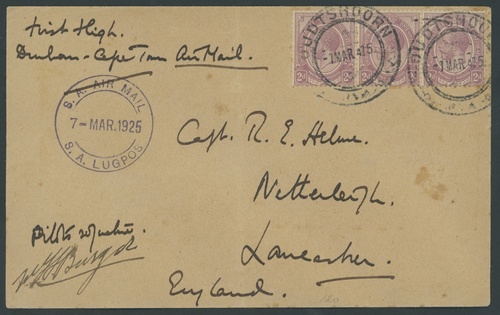 First Flight.
Durban - Cape Town Air Mail.
OUDTSHOORN
7 MAR. 25
OUDTSHOORN
7 MAR. 25
2D
2D
2D
S. A. AIR MAIL
7 - MAR. 1925
S. A. LUGPOS
Capt. R. E. Helme.
Netherleigh.
Lancaster.
England.
Pilots signature.
Burger